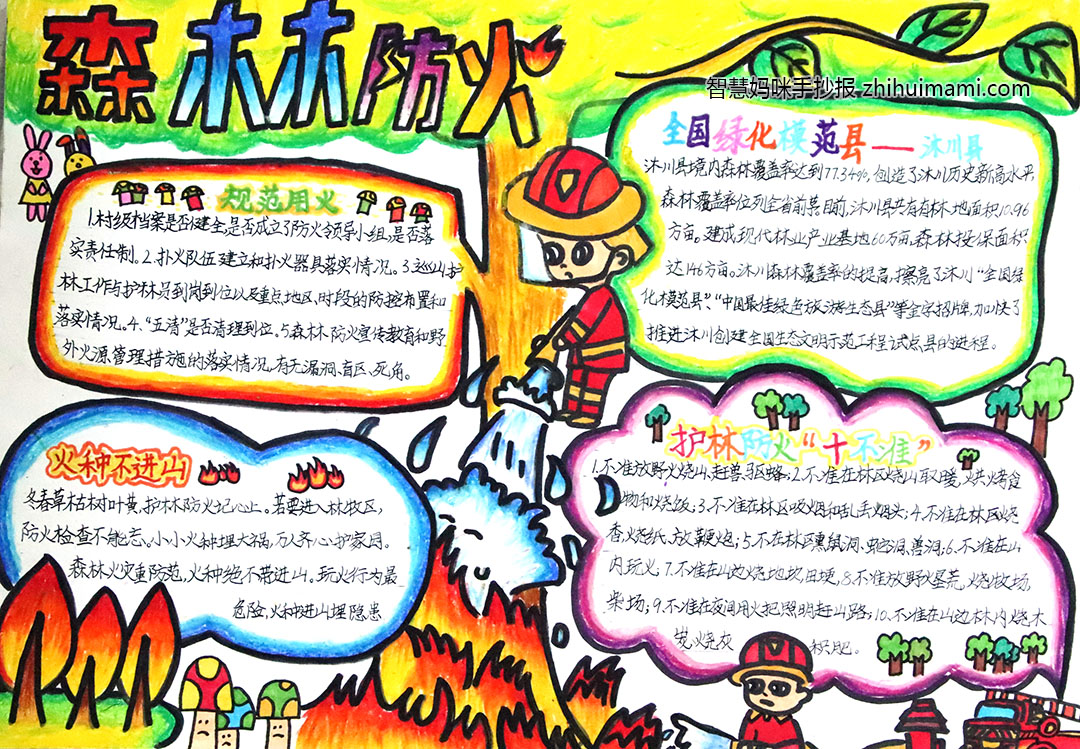 森林防火
智慧妈咪手抄报 zhihuimami.com
规范用火
1.村级档案是否健全,是否成立了防火领导小组,是否落
实责任制。2.扑火队伍建立和扑火器具落实情况。3.巡山护
林工作与护林员到岗到位以及重点地区,时段的防控布置和
落实情况。4、“五清”是否清理到位。5.森林防火宣传教育和野
外火源管理措施的落实情况,有无漏洞、盲区、死角。
全国绿化模范县——沐川县
沐川县境内森林覆盖率达到77.34%,创造了沐川历史新高水平,
森林覆盖率位列全省前茅。目前,沐川县共有有林地面积10.96
万亩。建成现代林业产业基地60万亩,森林投保面积
达146万亩。沐川森林覆盖率的提高,擦亮了沐川“全国绿
化模范县”、“中国最佳绿色旅游生态县”等金字招牌,加快了
推进沐川创建全国生态文明示范工程试点县的进程。
火种不进山
冬春草枯树叶黄,护林防火记心上。若要进入林牧区,
防火检查不能忘。小小火种埋大祸,万人齐心护家园。
森林火灾重防范,火种绝不带进山。玩火行为最
危险,火种进山埋隐患
护林防火“十不准”
1.不准放野火烧山、赶兽驱路;2.不准在林区烧山取暖,烘烤食
物和烧饭;3.不准在林区吸烟和乱丢烟头;4.不准在林区烧
香,烧纸、放鞭炮;5.不在林区熏鼠洞、蛇洞、兽洞;6.不准在山
内玩火;7.不准在山边烧地坎、田埂,8.不准放野火垦荒,烧牧场,
柴场;9.不准在夜间用火把照明赶山路;10.不准在山边林内烧木
炭烧灰 积肥。